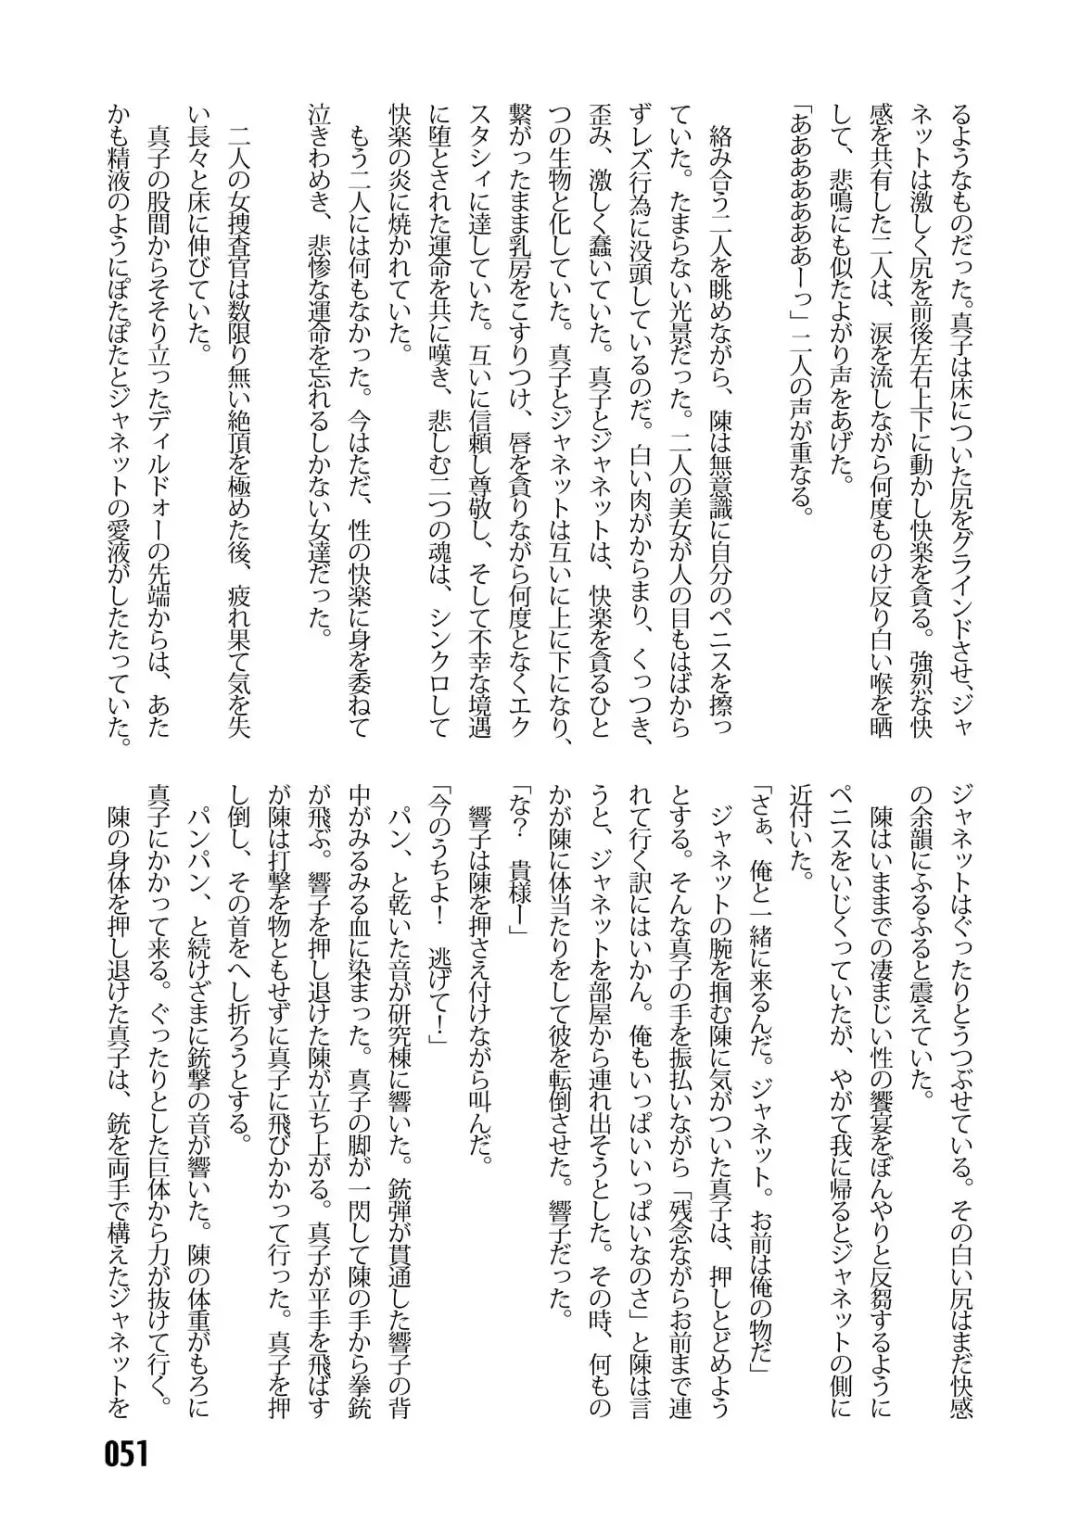 るようなものだった。真子は床についた尻をグラインドさせ、ジャ
ネットは激しく尻を前後左右上下に動かし快楽を貪る。強烈な快
感を共有した二人は、涙を流しながら何度ものけ反り白い喉を晒
して、悲鳴にも似たよがり声をあげた。
「ああああああーっ」二人の声が重なる。
絡み合う二人を眺めながら、陳は無意識に自分のペニスを擦っ
ていた。たまらない光景だった。二人の美女が人の目もはばから
ずレズ行為に没頭しているのだ。白い肉がからまり、くっつき、
歪み、激しく蠢いていた。真子とジャネットは、快楽を貪るひと
つの生物と化していた。真子とジャネットは互いに上に下になり、
繋がったまま乳房をこすりつけ、唇を貪りながら何度となくエク
スタシィに達していた。互いに信頼し尊敬し、そして不幸な境遇
に堕とされた運命を共に嘆き、悲しむ二つの魂は、シンクロして
快楽の炎に焼かれていた。
もう二人には何もなかった。今はただ、性の快楽に身を委ねて
泣きわめき、悲惨な運命を忘れるしかない女達だった。
二人の女捜査官は数限り無い絶頂を極めた後、疲れ果て気を失
い長々と床に伸びていた。
真子の股間からそそり立ったディルドォーの先端からは、あた
かも精液のようにぽたぽたとジャネットの愛液がしたたっていた。
ジャネットはぐったりとうつぶせている。その白い尻はまだ快感
の余韻にふるふると震えていた。
陳はいままでの凄まじい性の饗宴をぼんやりと反芻するように
ペニスをいじくっていたが、やがて我に帰るとジャネットの側に
近付いた。
「さぁ、俺と一緒に来るんだ。ジャネット。お前は俺の物だ」
ジャネットの腕を掴む陳に気がついた真子は、押しとどめよう
とする。そんな真子の手を振払いながら「残念ながらお前まで連
れて行く訳にはいかん。俺もいっぱいいっぱいなのさ」と陳は言
うと、ジャネットを部屋から連れ出そうとした。その時、何もの
かが陳に体当たりをして彼を転倒させた。響子だった。
「な？　貴様ー」
響子は陳を押さえ付けながら叫んだ。
「今のうちよ！　逃げて！」
パン、と乾いた音が研究棟に響いた。銃弾が貫通した響子の背
中がみるみる血に染まった。真子の脚が一閃して陳の手から拳銃
が飛ぶ。響子を押し退けた陳が立ち上がる。真子が平手を飛ばす
が陳は打撃を物ともせずに真子に飛びかかって行った。真子を押
し倒し、その首をへし折ろうとする。
パンパン、と続けざまに銃撃の音が響いた。陳の体重がもろに
真子にかかって来る。ぐったりとした巨体から力が抜けて行く。
陳の身体を押し退けた真子は、銃を両手で構えたジャネットを
051